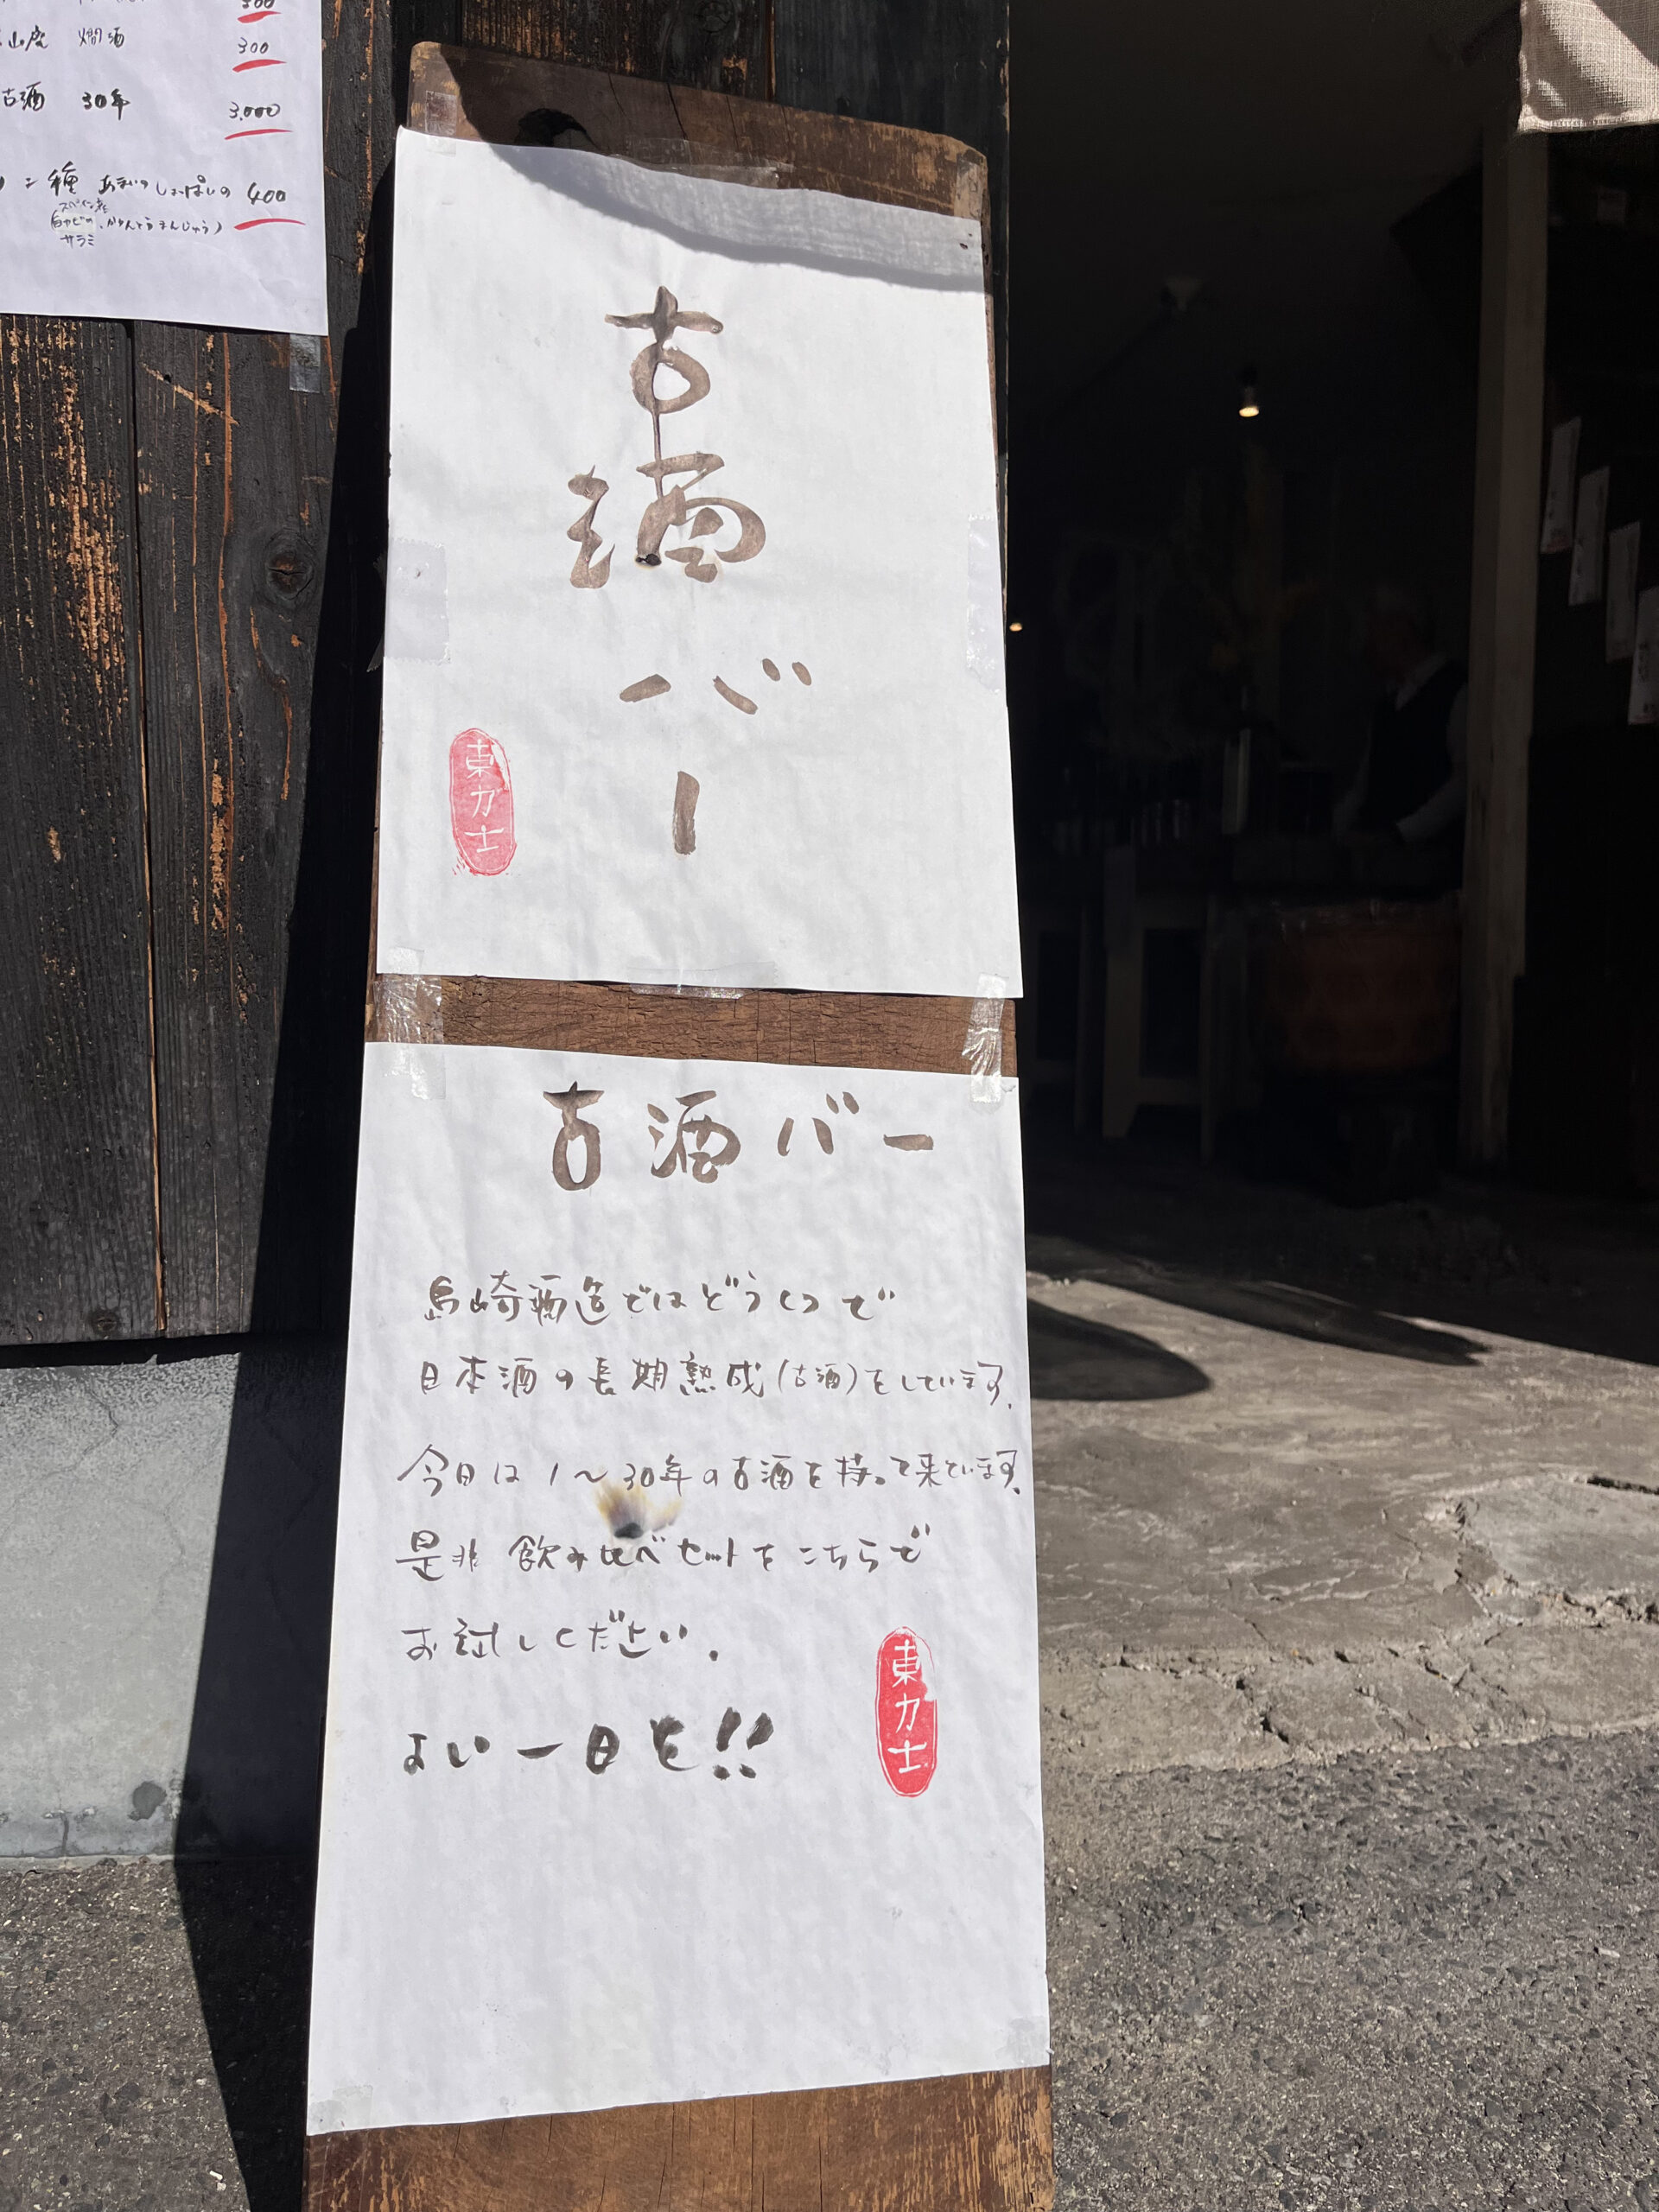 300
山廃 燗酒 300
古酒 30年 3,000
二種 あまいの しょっぱいの 400
サラミ かりんとうまんじゅう)
古酒バー
東力士
古酒バー
島崎酒造ではどうくつで
日本酒の長期熟成(古酒)をしています.
今日は1〜30年の古酒を持って来ています.
是非 飲み比べセットをこちらで
お試しください.
よい一日を!!
東力士